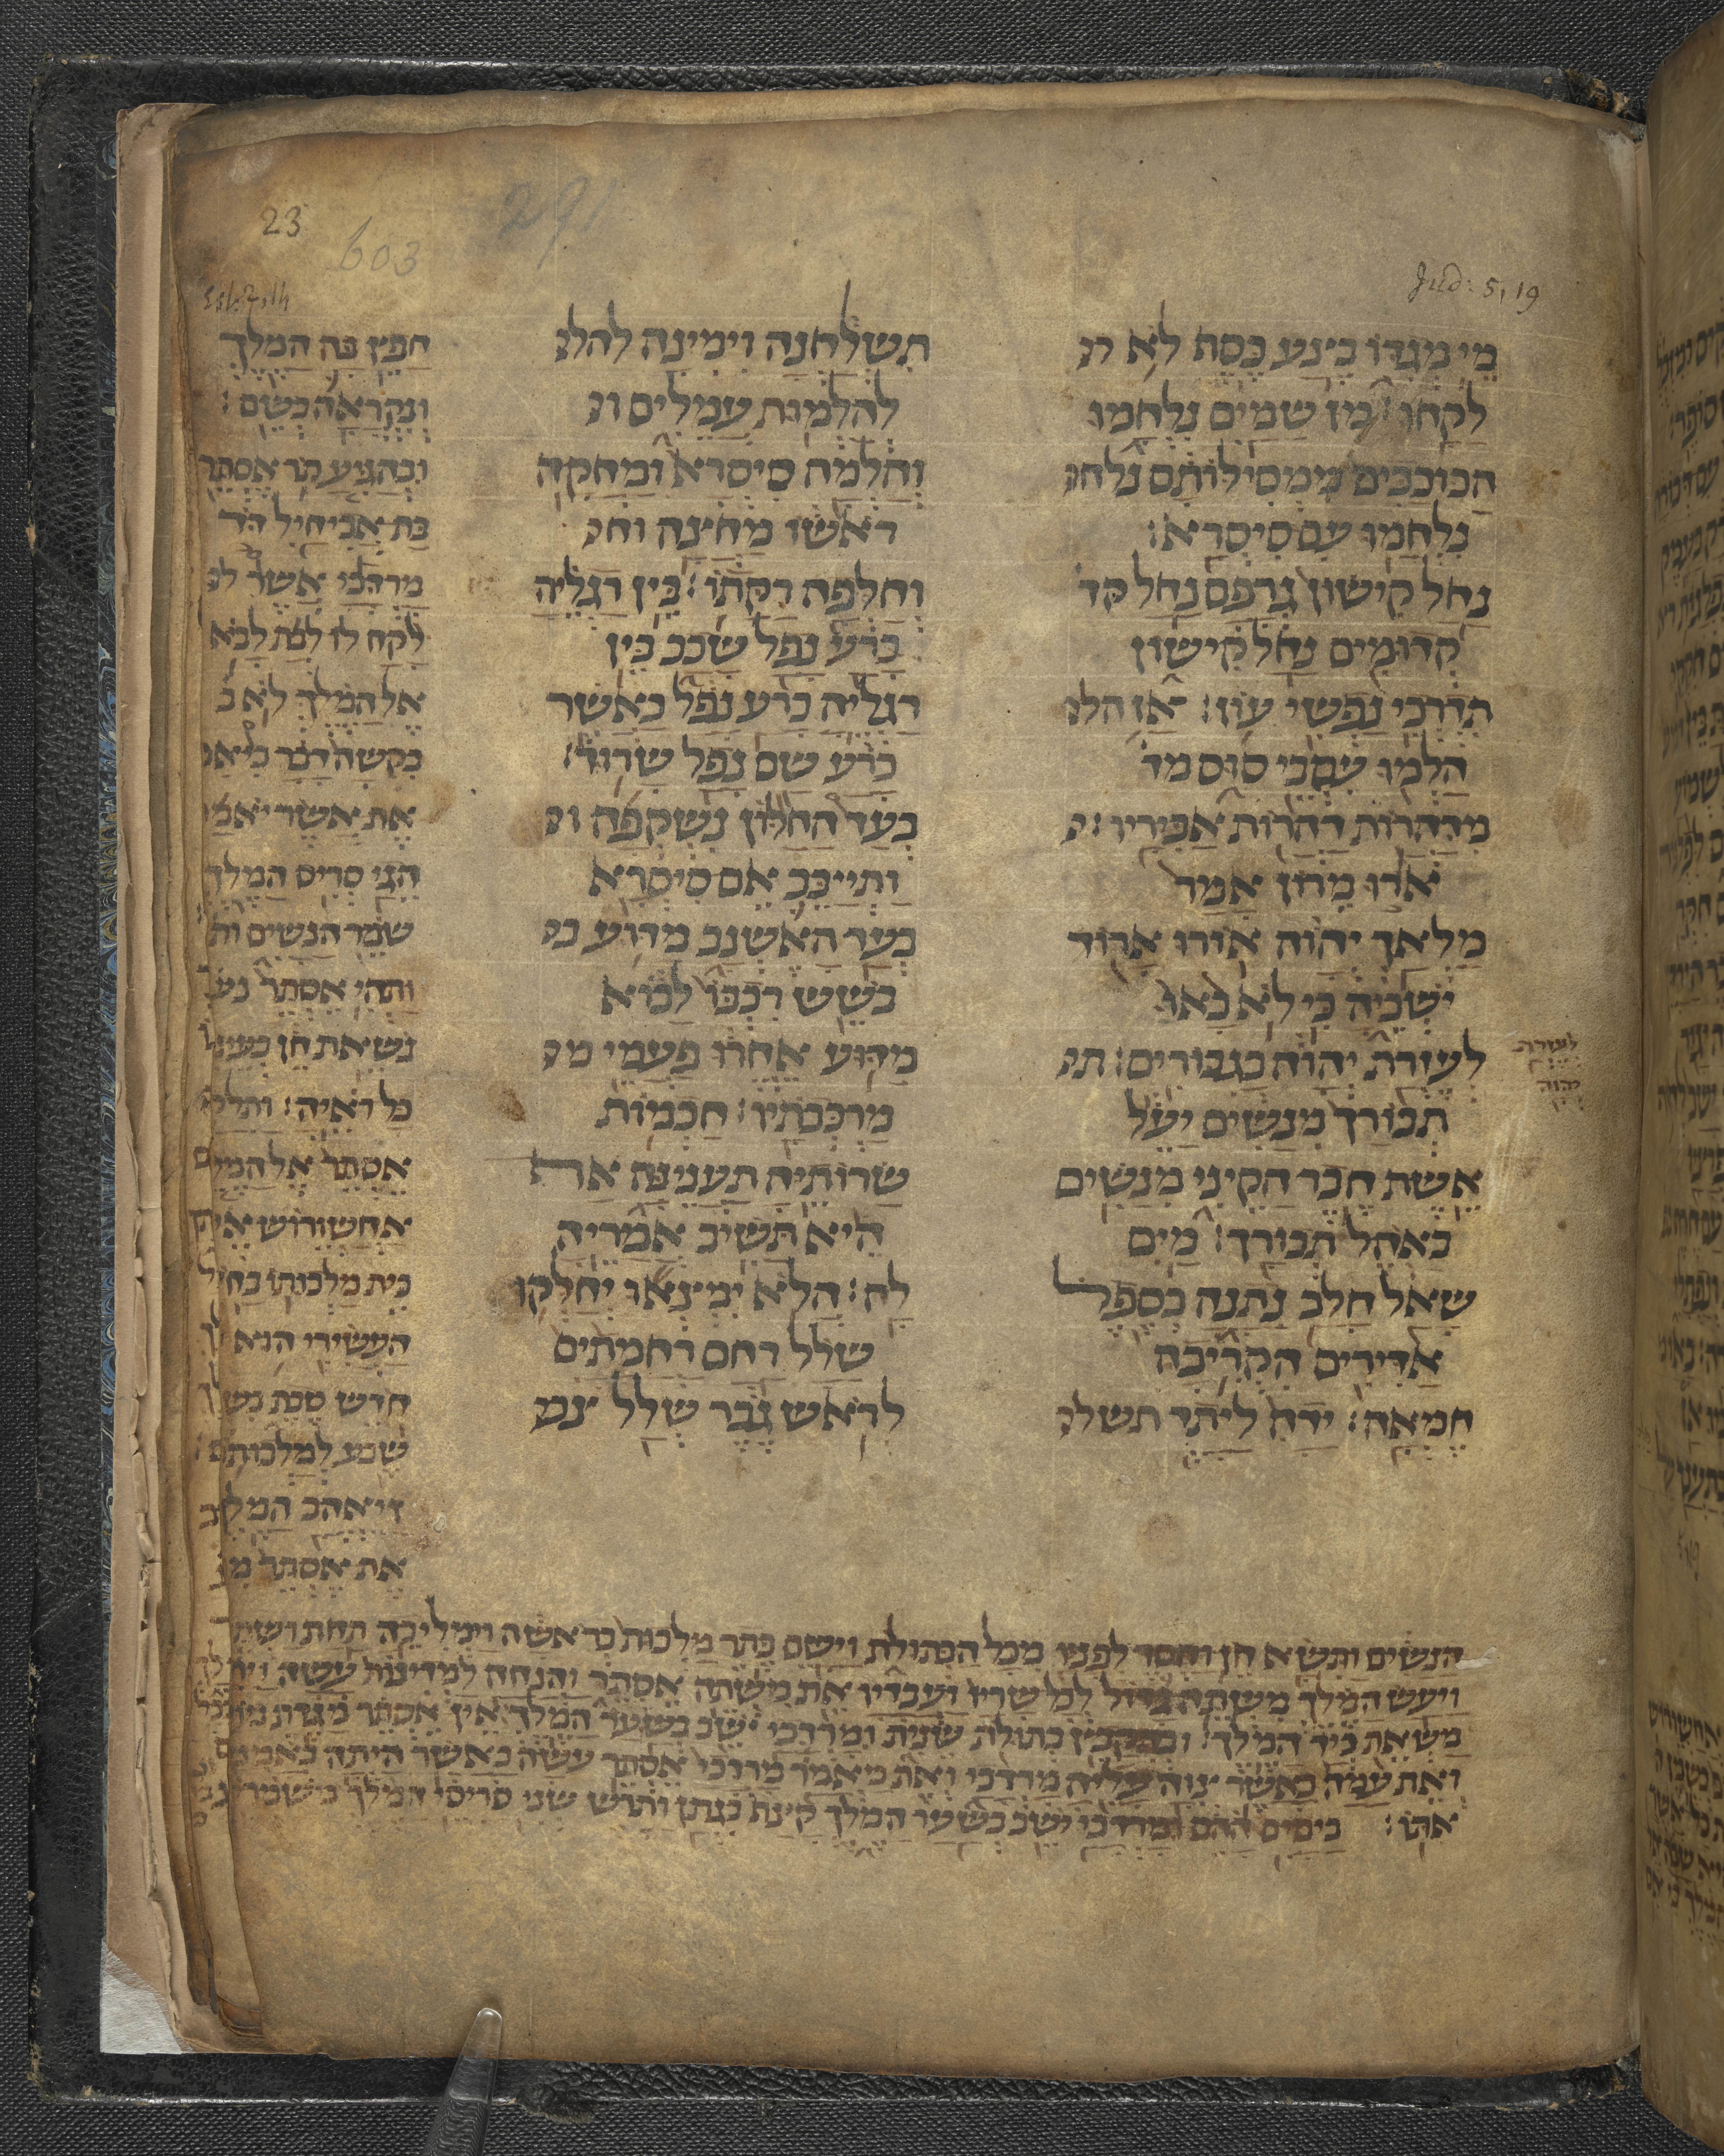 23
603
291
Jud: 5, 19
מי מגדו ביצע כסף לא לק
לקחו: מן שמים נלחמו
הכוכבים ממסילותם נלחמ
נלחמו עם סיסרא:
נחל קישון גרפם נחל קד
קדומים נחל קישון
תדרכי נפשי עוז: אז הלמ
הלמו עקבי סוס מד
מדהרות דהרות אביריו:
אורו מרוז אמר
מלאך יהוה אורו ארור
ישביה כי לא באו
לעזרת יהוה בגבורים: תב
תבורך מנשים יעל
אשת חבר הקיני מנשים
באהל תבורך: מים
שאל חלב נתנה בספל
אדירים הקריבה
חמאה: ידה ליתד תשלח
לעזרת
יהוה
תשלחנה וימינה להלמ
להלמות עמלים וה
והלמה סיסרא ומחקה
ראשו מחצה וחל
וחלפה רקתו: בין רגליה
כרע נפל שכב בין
רגליה כרע נפל באשר
כרע שם נפל שדוד:
בעד החלון נשקפה ות
ותייבב אם סיסרא
בעד האשנב מדוע בש
בשש רכבו לבוא
מדוע אחרו פעמי מר
מרכבתיו: חכמות
שרותיה תענינה אף
היא תשיב אמריה
לה: הלא ימצאו יחלקו
שלל רחם רחמתים
לראש גבר שלל צב
חפץ בה המלך
ונקראה בשם:
ובהגיע תר אסתר
בת אביחיל דד
מרדכי אשר לק
לקח לו לבת לבוא
אל המלך לא ב
בקשה דבר כי אם
את אשר יאמר
הגי סריס המלך
שמר הנשים ות
ותהי אסתר נש
נשאת חן בעיני
כל ראיה: ותלקח
אסתר אל המלך
אחשורוש אל
בית מלכותו בחדש
העשירי הוא
חדש טבת בשנת
שבע למלכותו:
ויאהב המלך
את אסתר מכל
הנשים ותשא חן וחסד לפניו מכל הבתולת וישם כתר מלכות בראשה וימליכה תחת ושתי
ויעש המלך משתה גדול לכל שריו ועבדיו את משתה אסתר והנחה למדינות עשה ויתן
משאת כיד המלך: ובהקבץ בתולת שנית ומרדכי ישב בשער המלך אין אסתר מגדת מולדתה
ואת עמה כאשר צוה עליה מרדכי ואת מאמר מרדכי אסתר עשה כאשר היתה באמנה
אתו: בימים ההם ומרדכי ישב בשער המלך קצף בגתן ותרש שני סריסי המלך משמרי